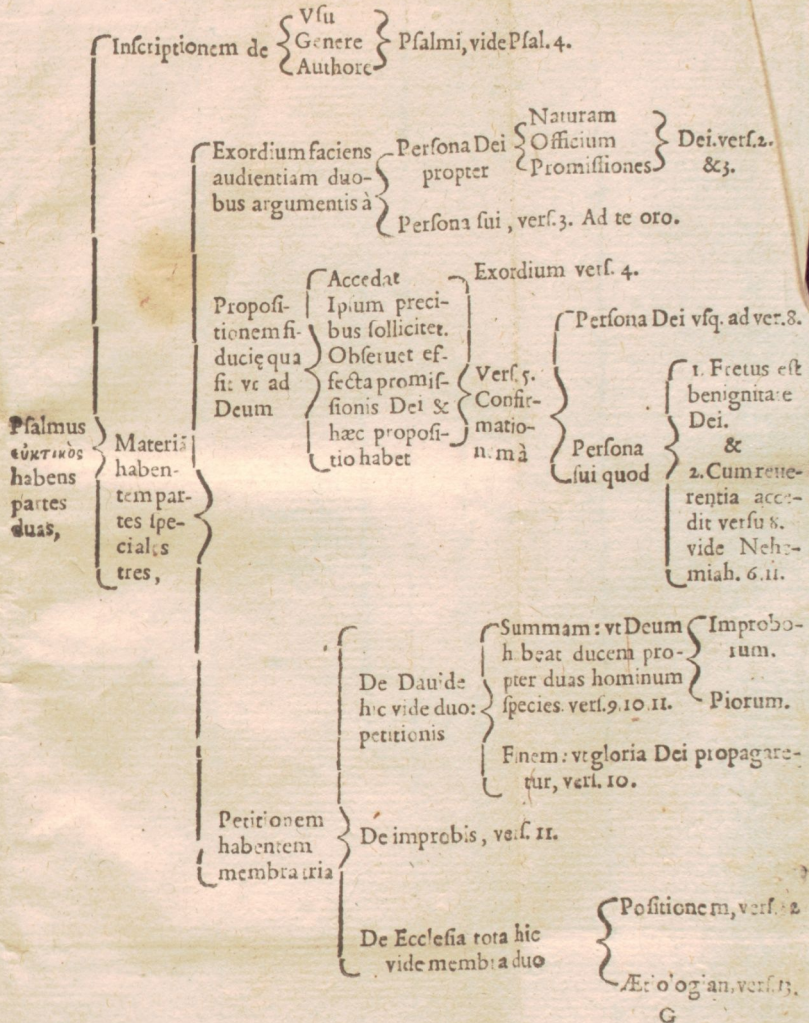 Pſalmus
εὐκτικὸς
habens
partes
duas,
Inſcriptionem de
Vſu
Genere
Authore
Pſalmi, vide Pſal. 4.
Materiã
haben-
tem par-
tes ſpe-
ciales
tres,
Exordium faciens
audientiam duo-
bus argumentis à
Perſona Dei
propter
Naturam
Officium
Promiſſiones
Dei. verſ. 2.
&3.
Perſona ſui, verſ. 3. Ad te oro.
Propoſi-
tionem fi-
ducię qua
ſit vt ad
Deum
Accedat
Ipſum preci-
bus ſollicitet.
Obſeruet ef-
fecta promiſ-
ſionis Dei &
hæc propoſi-
tio habet
Exordium verſ. 4.
Verſ. 5.
Confir-
matio-
nẽ mà
Perſona Dei vſq. ad ver. 8.
Perſona
ſui quod
1. Fretus eſt
benignitate
Dei.
&
2. Cum reue-
rentia acce-
dit verſu 8.
vide Nehe-
miah. 6. 11.
Petitionem
habentem
membra tria
De Dauide
hic vide duo:
petitionis
Summam: vt Deum
habeat ducem pro-
pter duas hominum
ſpecies. verſ. 9. 10. 11.
Improbo-
rum.
Piorum.
Finem: vt gloria Dei propagare-
tur, verſ. 10.
De improbis, verſ. 11.
De Eccleſia tota hic
vide membra duo
Poſitionem, verſ. 2
Ætiologian, verſ. 13.
G